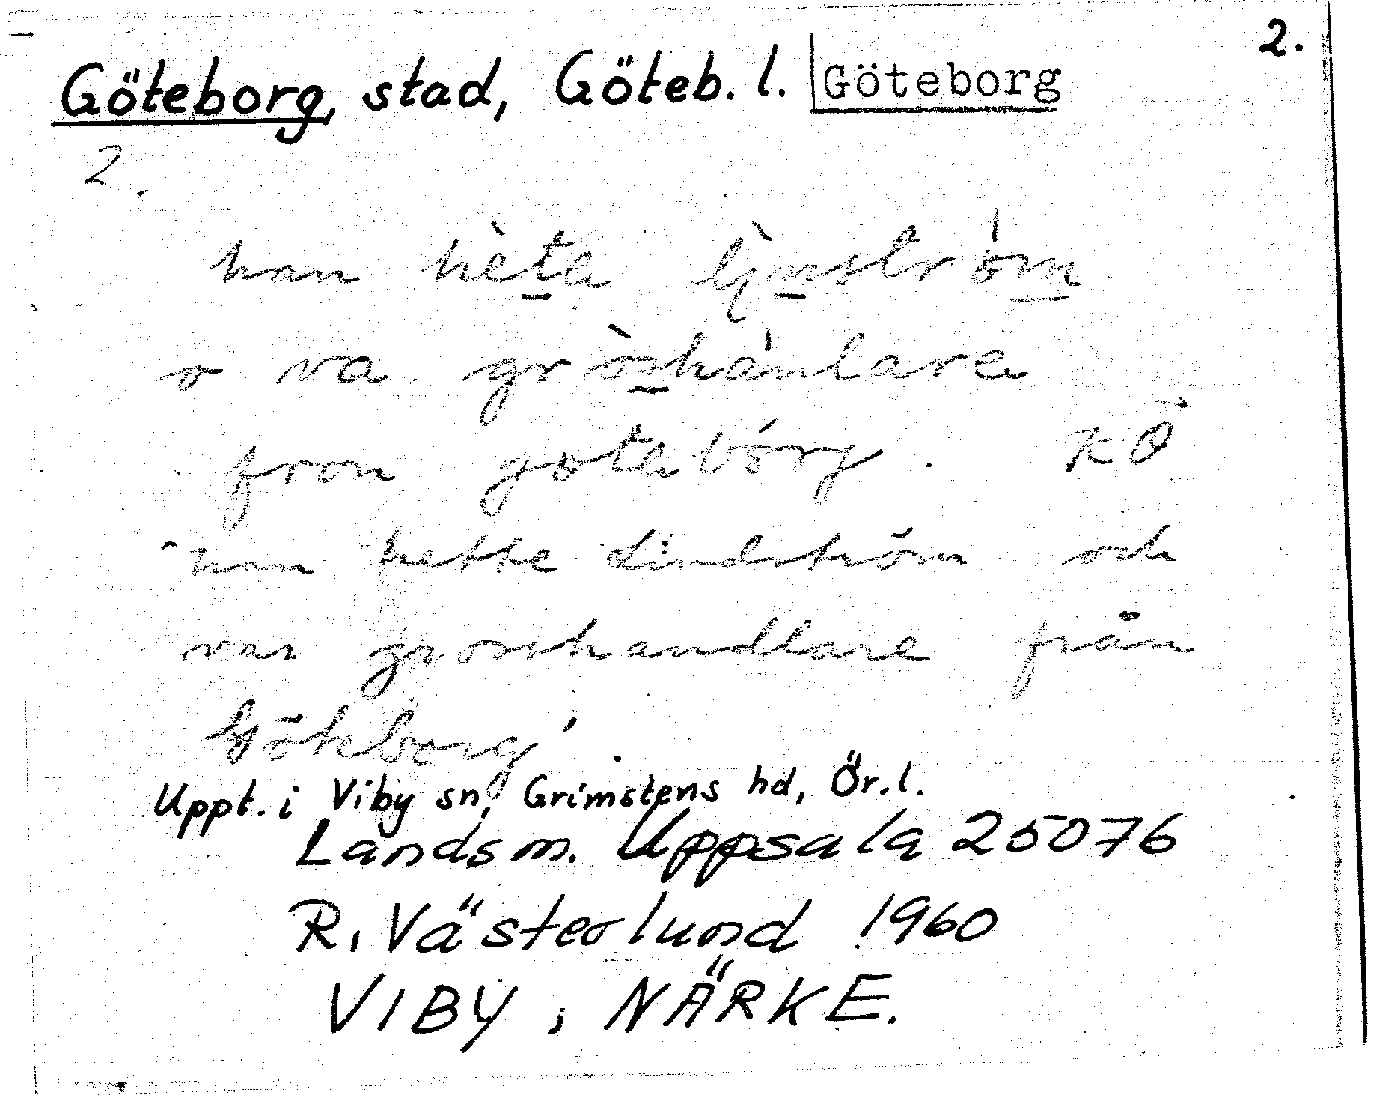 2.
Göteborg, stad, Göteb. l. Göteborg
2.
han hèta lìnström
o va gròshámlare
fron götabórj. KÖ
'han hette Lindström och
var grosshandlare från
Göteborg'.
Uppt. i Viby sn, Grimstens hd, Ör. l.
Landsm. Uppsala 25076
R. Västerlund 1960
VIBY, NÄRKE.